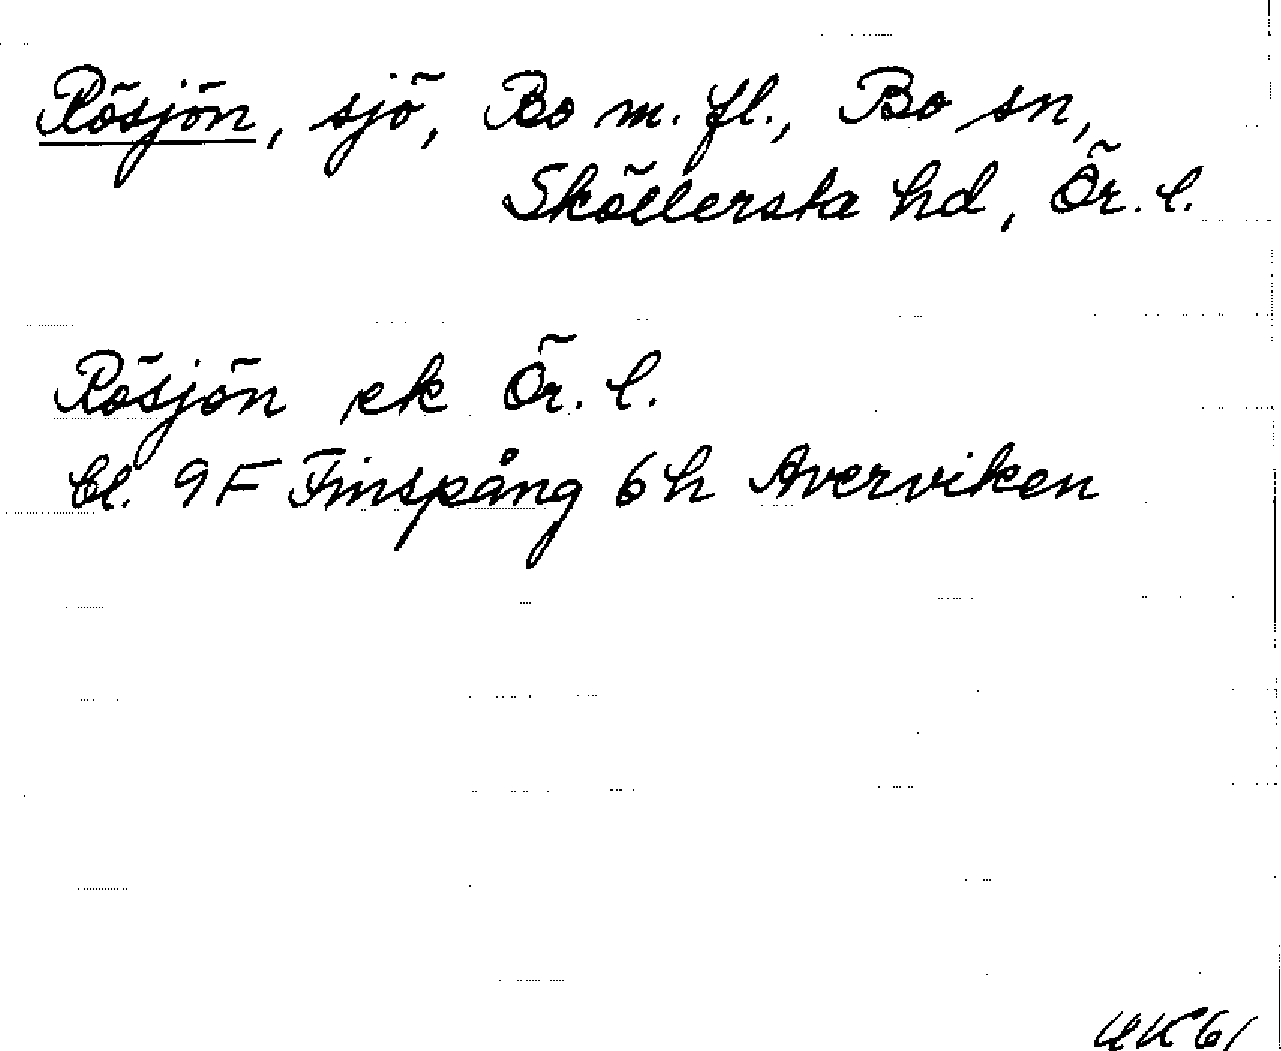 Rösjön, sjö, Bo m. fl., Bo sn,
Sköllersta hd, Ör. l.
Rösjön ek Ör. l.
bl. 9 F Finspång 6 h Averviken